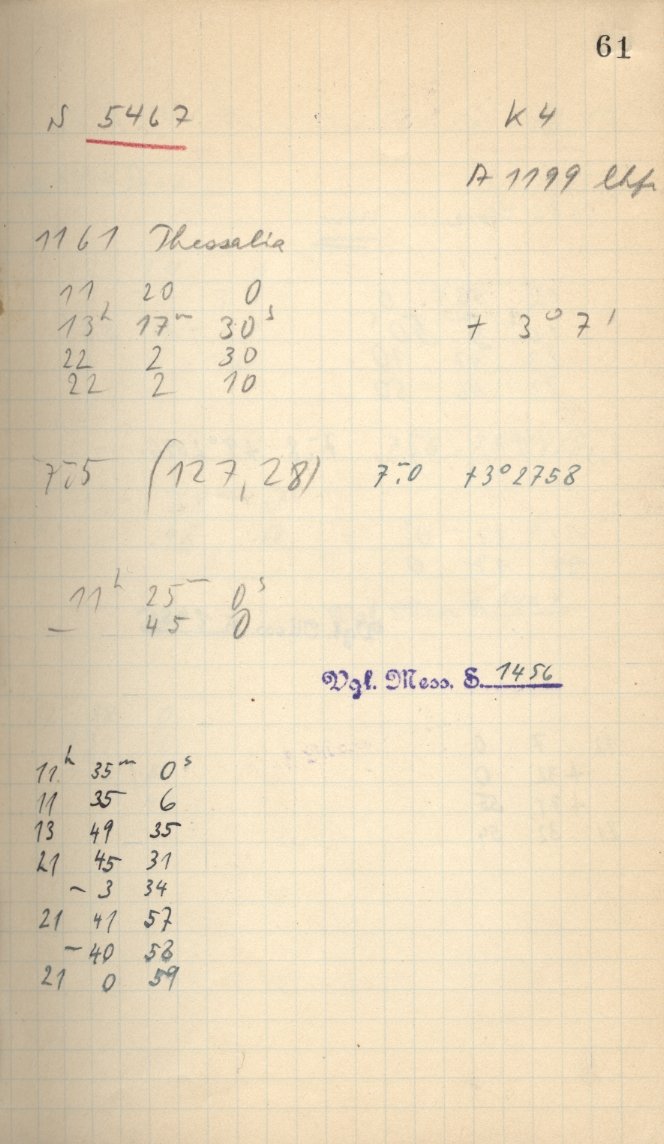 61
N 5467 K 4
A 1199
1161 Thessalia
11 20 0
13h 17m 30s + 3° 7'
22 2 30
22 2 10
7.5 (127,28) 7.0 +3°2758
11h 25m 0s
- 45 0
Vgl. Mess. S. 1456
11h 35m 0s
11 35 6
13 49 35
21 45 31
- 3 34
21 41 57
- 40 58
21 0 59